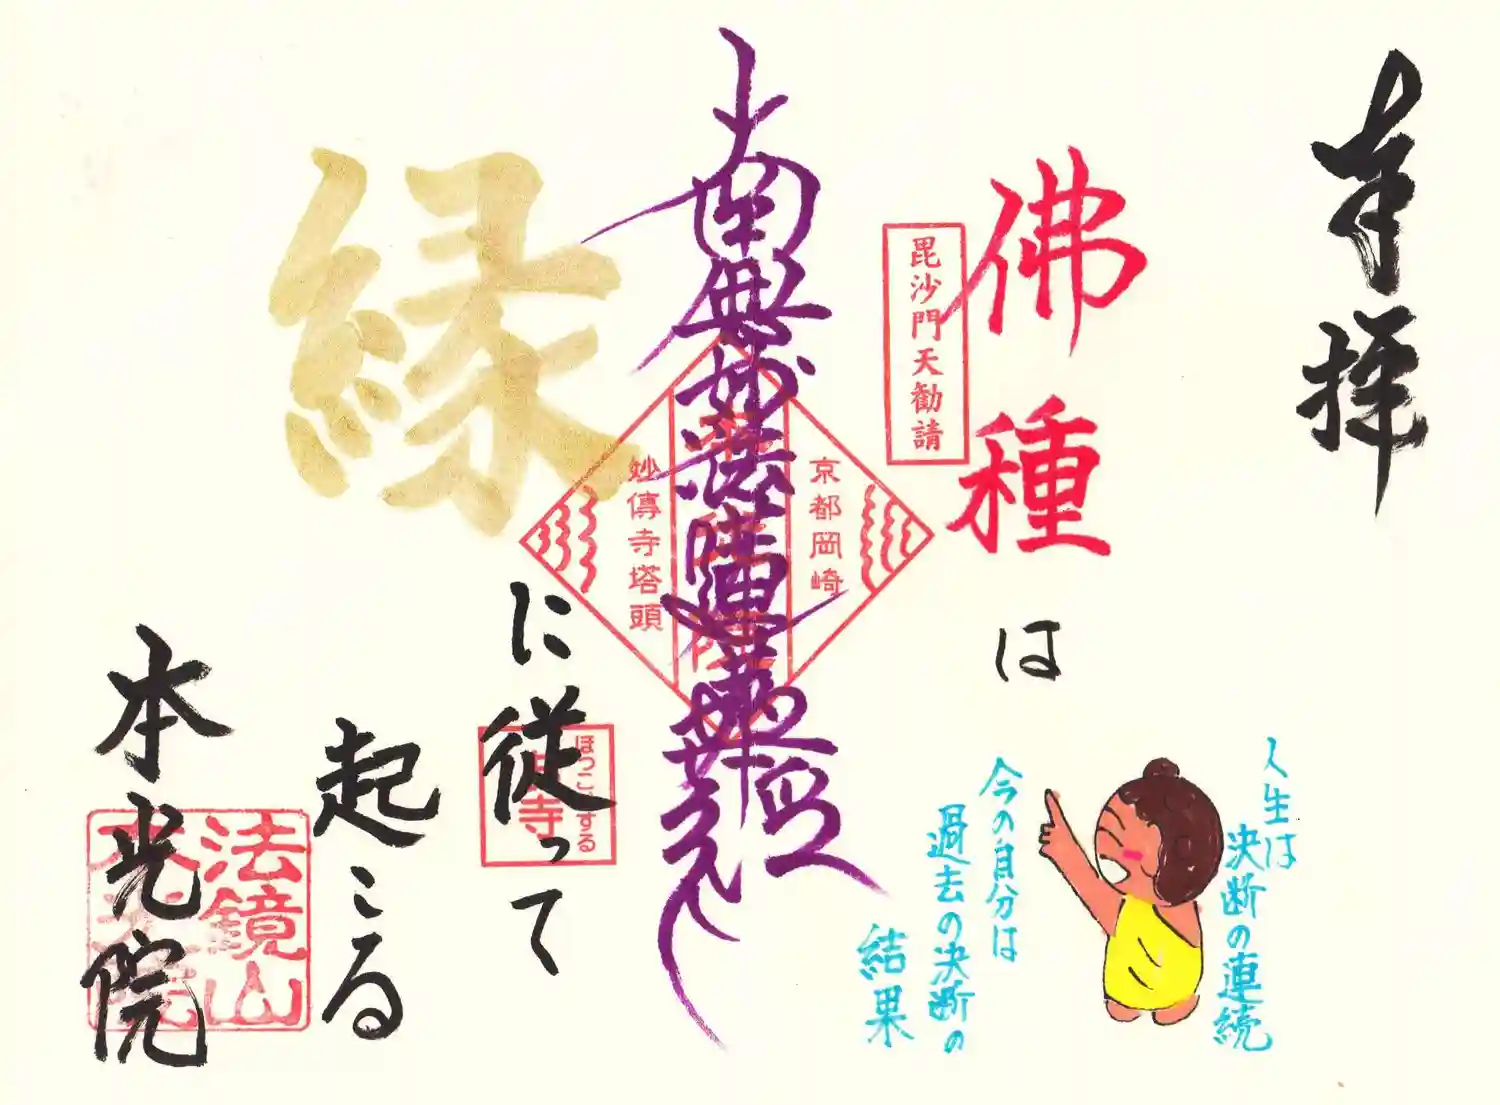 奉拝
佛種は
毘沙門天勧請
南無妙法蓮華経
京都岡崎
妙傳寺塔頭
縁
に従って
起こる
本光院
法鏡山
人生は
決断の連続
今の自分は
過去の決断の
結果